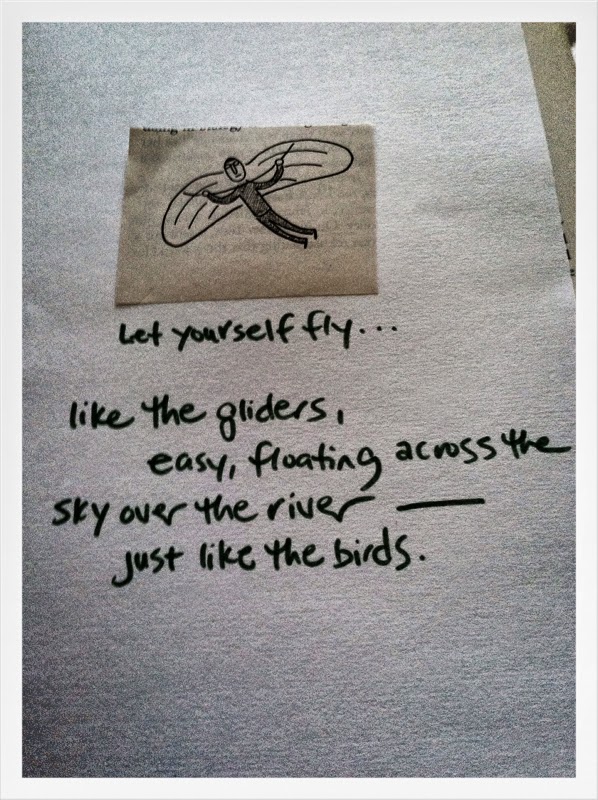 Let yourself fly...
like the gliders,
easy, floating across the
sky over the river —
just like the birds.